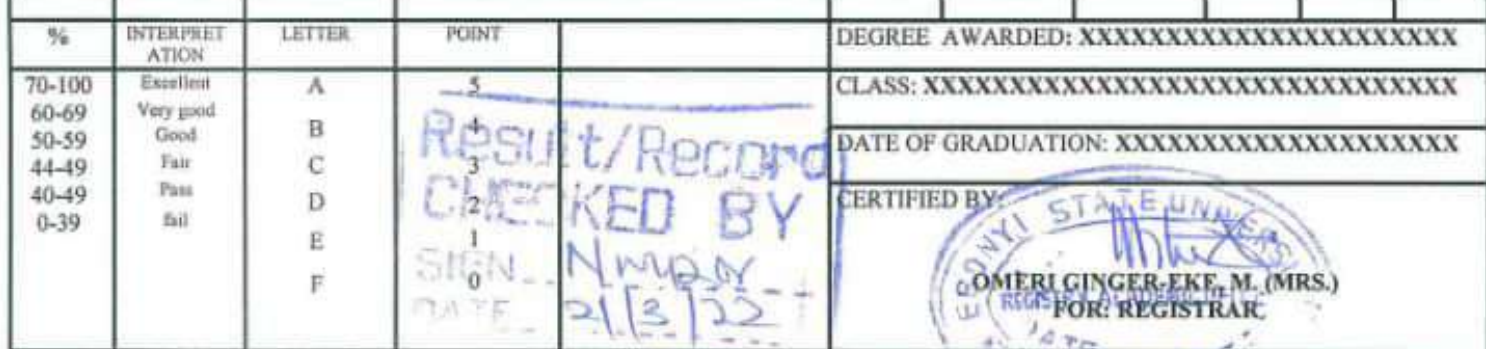 % INTERPRETATION LETTER POINT
70-100 Excellent A 5
60-69 Very good B 4
50-59 Good C 3
44-49 Fair D 2
40-49 Pass E 1
0-39 fail F 0
Result/Record
CHECKED BY
SIGN
DATE 21/3/22
DEGREE AWARDED: XXXXXXXXXXXXXXXXXXXXXX
CLASS: XXXXXXXXXXXXXXXXXXXXXXXXXXXXXXX
DATE OF GRADUATION: XXXXXXXXXXXXXXXXXXXX
CERTIFIED BY:
EBONYI STATE UNIVERSITY
OMERI GINGER-EKE, M. (MRS.)
FOR: REGISTRAR